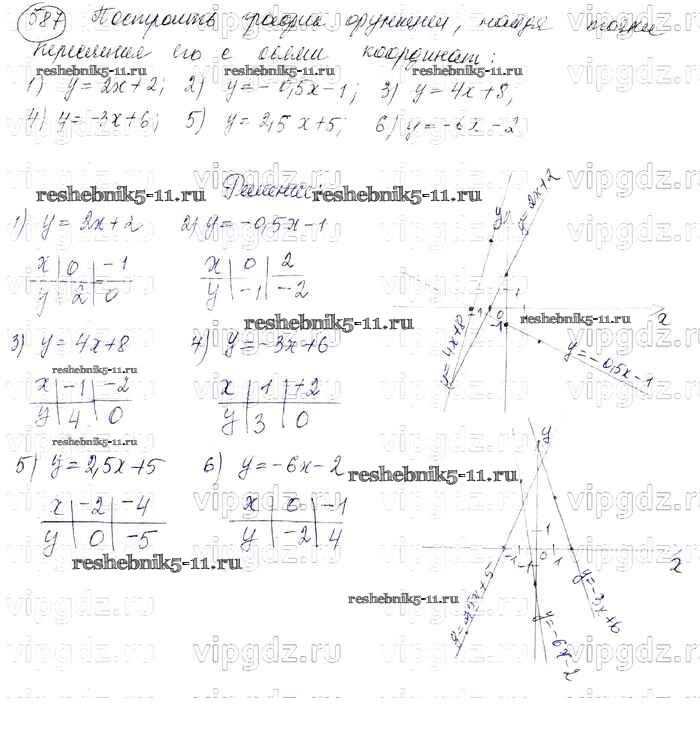 587 Построить график функции, найдя точки
пересечения его с осями координат:
reshebnik5-11.ru reshebnik5-11.ru
1) y=2x+2; 2) y=-0,5x-1; 3) y=4x+8;
4) y=-3x+6; 5) y=2,5x+5; 6) y=-6x-2
Решение:
reshebnik5-11.ru reshebnik5-11.ru
1) y=2x+2 2) y=-0,5x-1
x 0 -1 x 0 2
y 2 0 y -1 -2
reshebnik5-11.ru
3) y=4x+8 4) y=-3x+6
reshebnik5-11.ru
x -1 -2 x 1 +2
y 4 0 y 3 0
reshebnik5-11.ru
5) y=2,5x+5 6) y=-6x-2
x -2 -4 x 0 -1
y 0 -5 y -2 4
reshebnik5-11.ru
y y=2x+2
1
-1 0 x
-1
reshebnik5-11.ru
y=4x+8 y=-0,5x-1
y
reshebnik5-11.ru
1
-1 0 1 x
-1
reshebnik5-11.ru
y=2,5x+5 y=-6x-2 y=-3x+6
vipgdz.ru